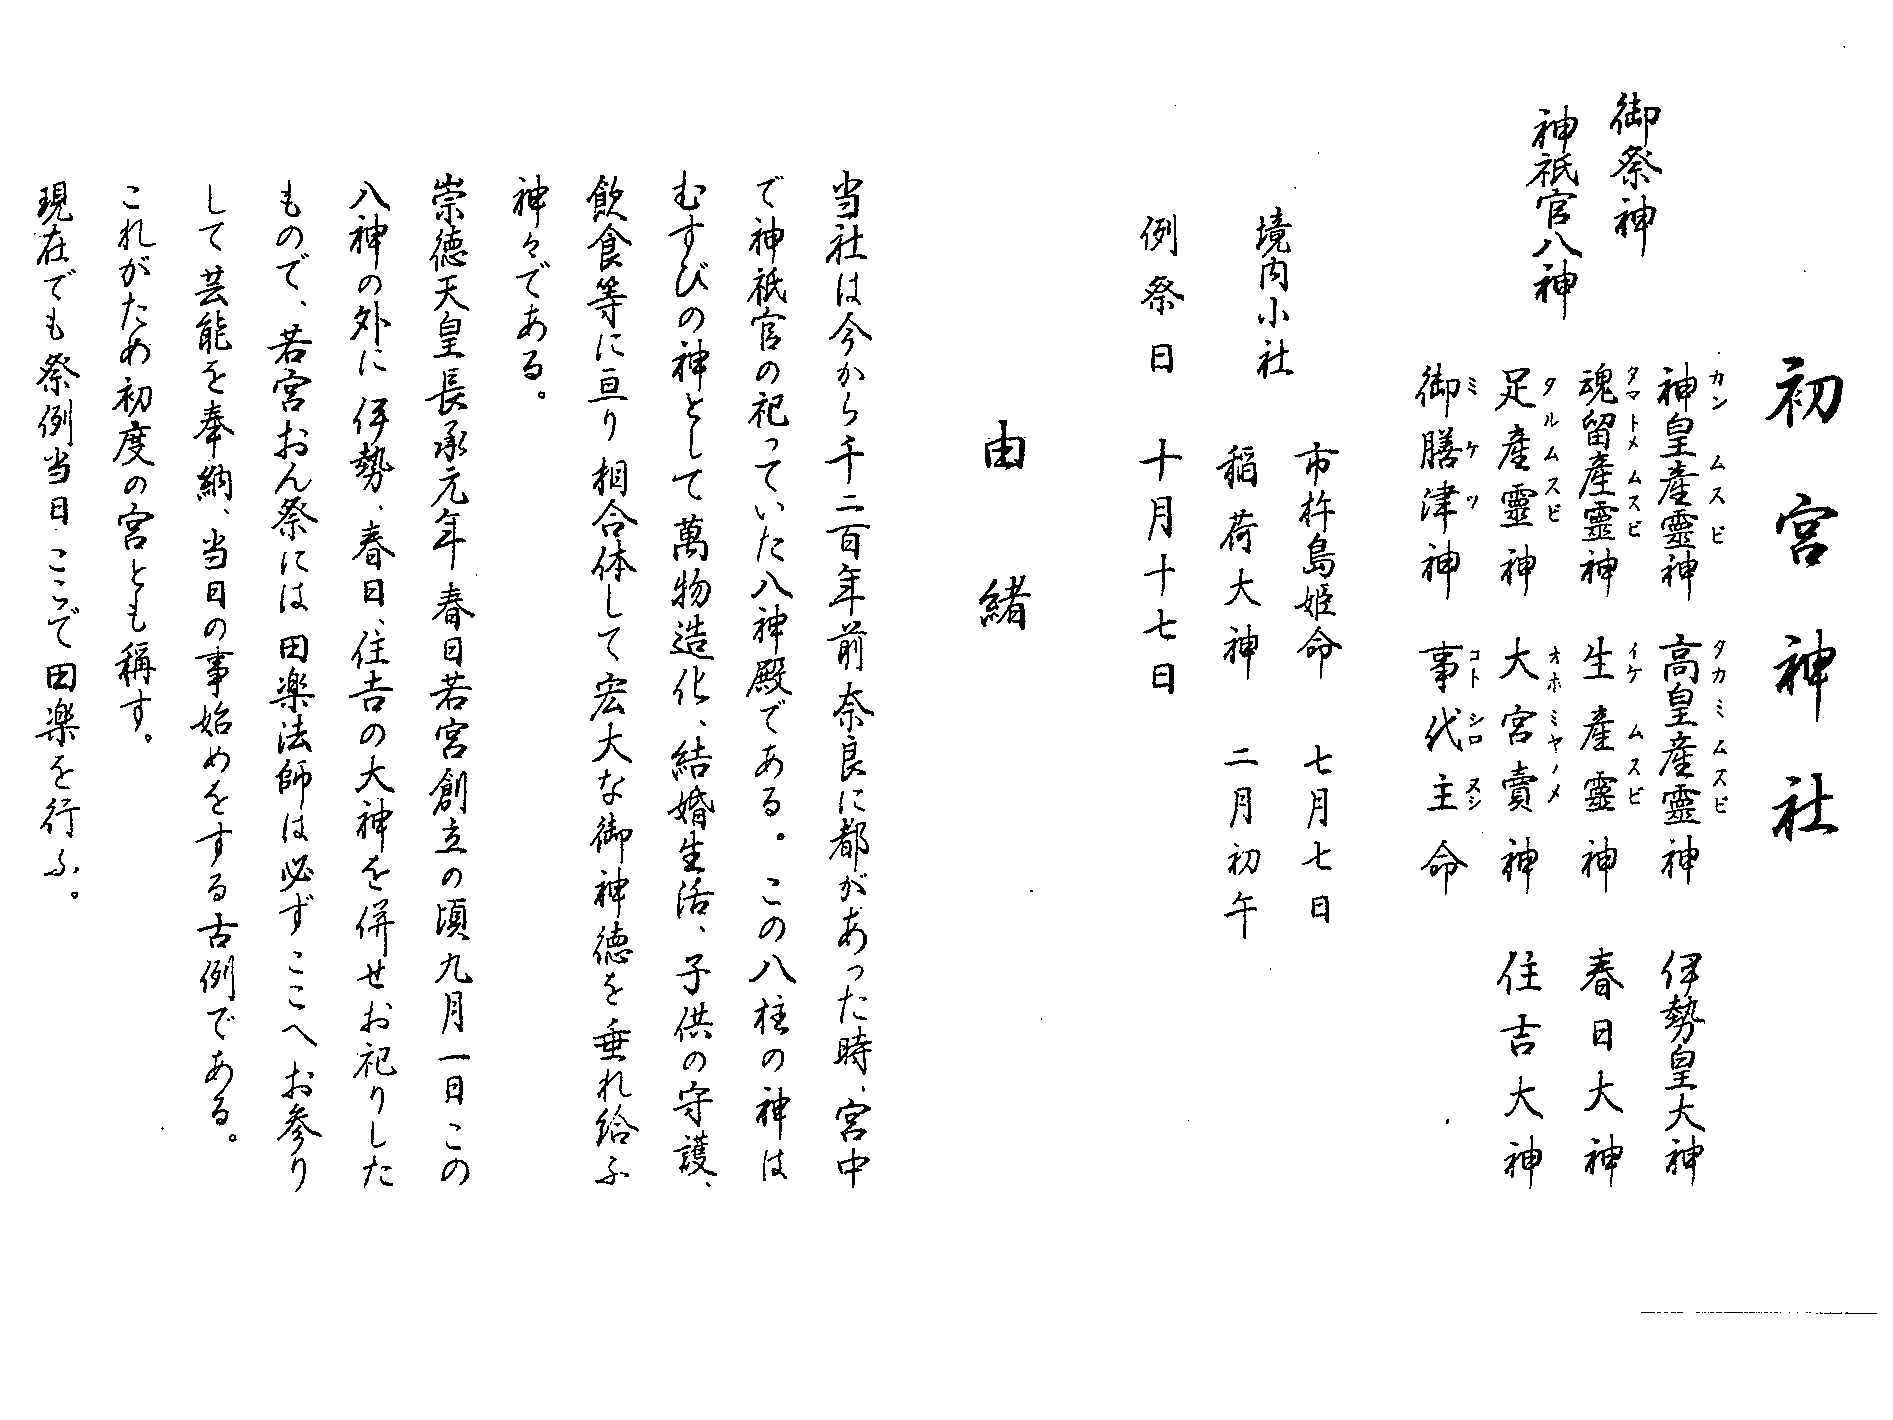 初宮神社
御祭神
神祇官八神
神皇産靈神 高皇産靈神 伊勢皇大神
カン ムスビ タカミムスビ
魂留産靈神 生産靈神 春日大神
タマトメムスビ イケムスビ
足産靈神 大宮賣神 住吉大神
タルムスビ オホミヤノメ
御膳津神 事代主命
ミケツ コトシロヌシ
境内小社
市杵島姫命 七月七日
稲荷大神 二月初午
例祭日 十月十七日
由緒
当社は今から千二百年前奈良に都があった時、宮中
で神祇官の祀っていた八神殿である。この八柱の神は
むすびの神として萬物造化、結婚生活、子供の守護、
飲食等に亘り相合体して宏大な御神徳を垂れ給ふ
神々である。
崇徳天皇長承元年春日若宮創立の頃九月一日この
八神の外に伊勢、春日、住吉の大神を併せお祀りした
もので、若宮おん祭には田楽法師は必ずここへお参り
して芸能を奉納、当日の事始めをする古例である。
これがため初度の宮とも稱す。
現在でも祭例当日ここで田楽を行ふ。